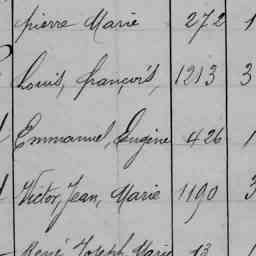 pierre Marie 272 1
Louis, françois, 1213 3
Emmanuel, Eugène 426 1
Victor, Jean, Marie 1190 3
René Joseph Marie 13 1